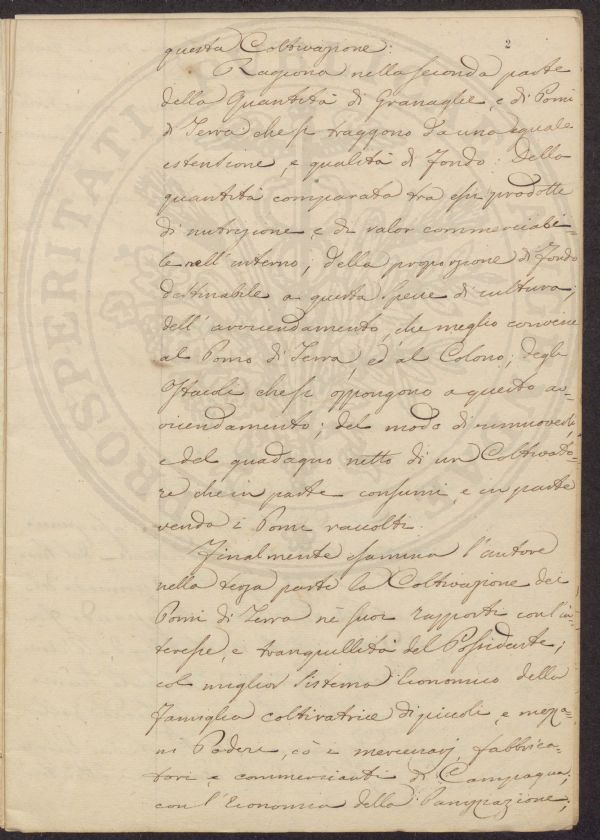 2
questa Coltivazione:
Ragiona nella seconda parte
della Quantità di Granaglie, e di Pomi
di Terra che si traggono da una eguale
estensione, e qualità di fondo: Della
quantità comparata tra essi prodotte
di nutrizione e di valor commerciabi-
le nell'interno; della proporzione di fondo
destinabile a questa specie di cultura;
dell'avvicendamento, che meglio conviene
al Pomo di Terra, ed al Colono; degli
Ostacoli che si oppongono a questo av-
vicendamento; del modo di rimuoverli,
e del guadagno netto di un Coltivato-
re che in parte consumi, e in parte
venda i Pomi raccolti.
Finalmente esamina l'autore
nella terza parte la Coltivazione dei
Pomi di Terra nè suoi rapporti con l'in-
teresse, e tranquillità del Possidente;
col miglior Sistema Economico della
Famiglia coltivatrice di piccoli, e mezza-
ni Poderi, cò mercenarj, fabbrica-
tori, e commercianti di Campagna;
con l'Economia della Panizzazione,
PROSPERITATI PUBLICAE